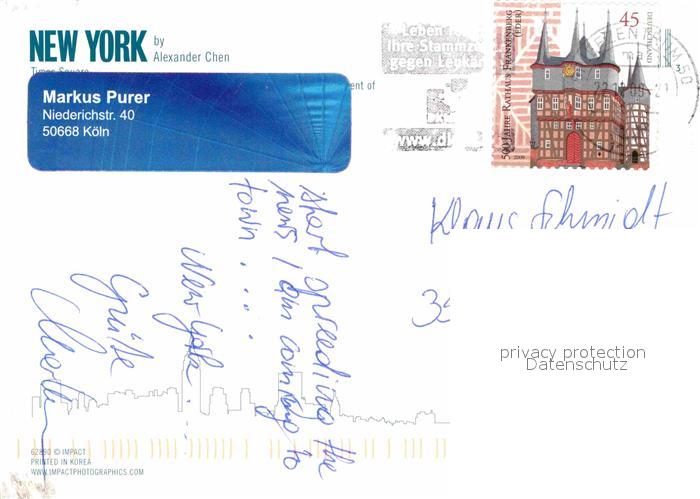 NEW YORK by
Alexander Chen
Times Square
Markus Purer
Niederichstr. 40
50668 Köln
Leben
Ihre Stammz
gegen Leukä
www.d
500 JAHRE RATHAUS FRANKENBERG
(EDER)
45
DEUTSCHLAND
2009
BRIEFZENTRUM
start spreading the
news I am coming to
town . . . .
New York . . .
Grüße
Schmidt
privacy protection
Datenschutz
62890 © IMPACT
PRINTED IN KOREA
WWW.IMPACTPHOTOGRAPHICS.COM